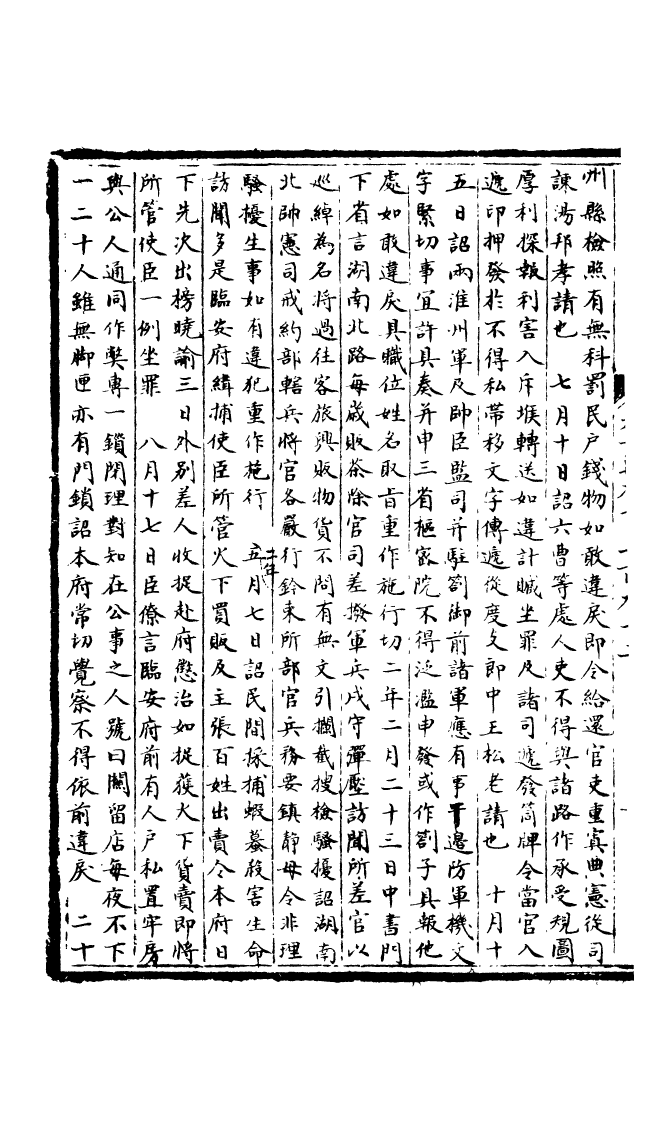 州縣檢照有無科罰民户錢物如敢違戾即令給還官吏重寘典憲從司
諫湯邦孝請也　七月十日詔六曹等處人吏不得與諸路作承受規圖
厚利探報利害入斥堠轉送如違計贓坐罪及諸司遞發筒牌令當官入
遞印押發於不得私帶移文字傳遞從度支郎中王松老請也　十月十
五日詔兩淮州軍及帥臣監司并駐劄御前諸軍應有事干邊防軍機文
字緊切事宜許具奏并申三省樞密院不得泛濫申發或作劄子具報他
處如敢違戾具職位姓名取旨重作施行切二年二月二十三日中書門
下省言湖南北路每歲販茶除官司差撥軍兵戍守彈壓訪聞所差官以
巡綽為名將過往客旅興販物貨不問有無文引攔截搜檢騷擾詔湖南
北帥憲司戒約部轄兵將官各嚴行鈐束所部官兵務要鎮静毋令非理
騷擾生事如有違犯重作施行　二年五月七日詔民間採捕蝦蟇殺害生命
訪聞多是臨安府緝捕使臣所管火下買販及主張百姓出賣令本府日
下先次出榜曉諭三日外别差人收捉赴府懲治如捉獲火下貨賣即將
所管使臣一例坐罪　八月十七日臣僚言臨安府前有人户私置牢房
與公人通同作弊專一鎖閉理對知在公事之人號曰關留店每夜不下
一二十人雖無脚匣亦有門鎖詔本府常切覺察不得依前違戾　二十